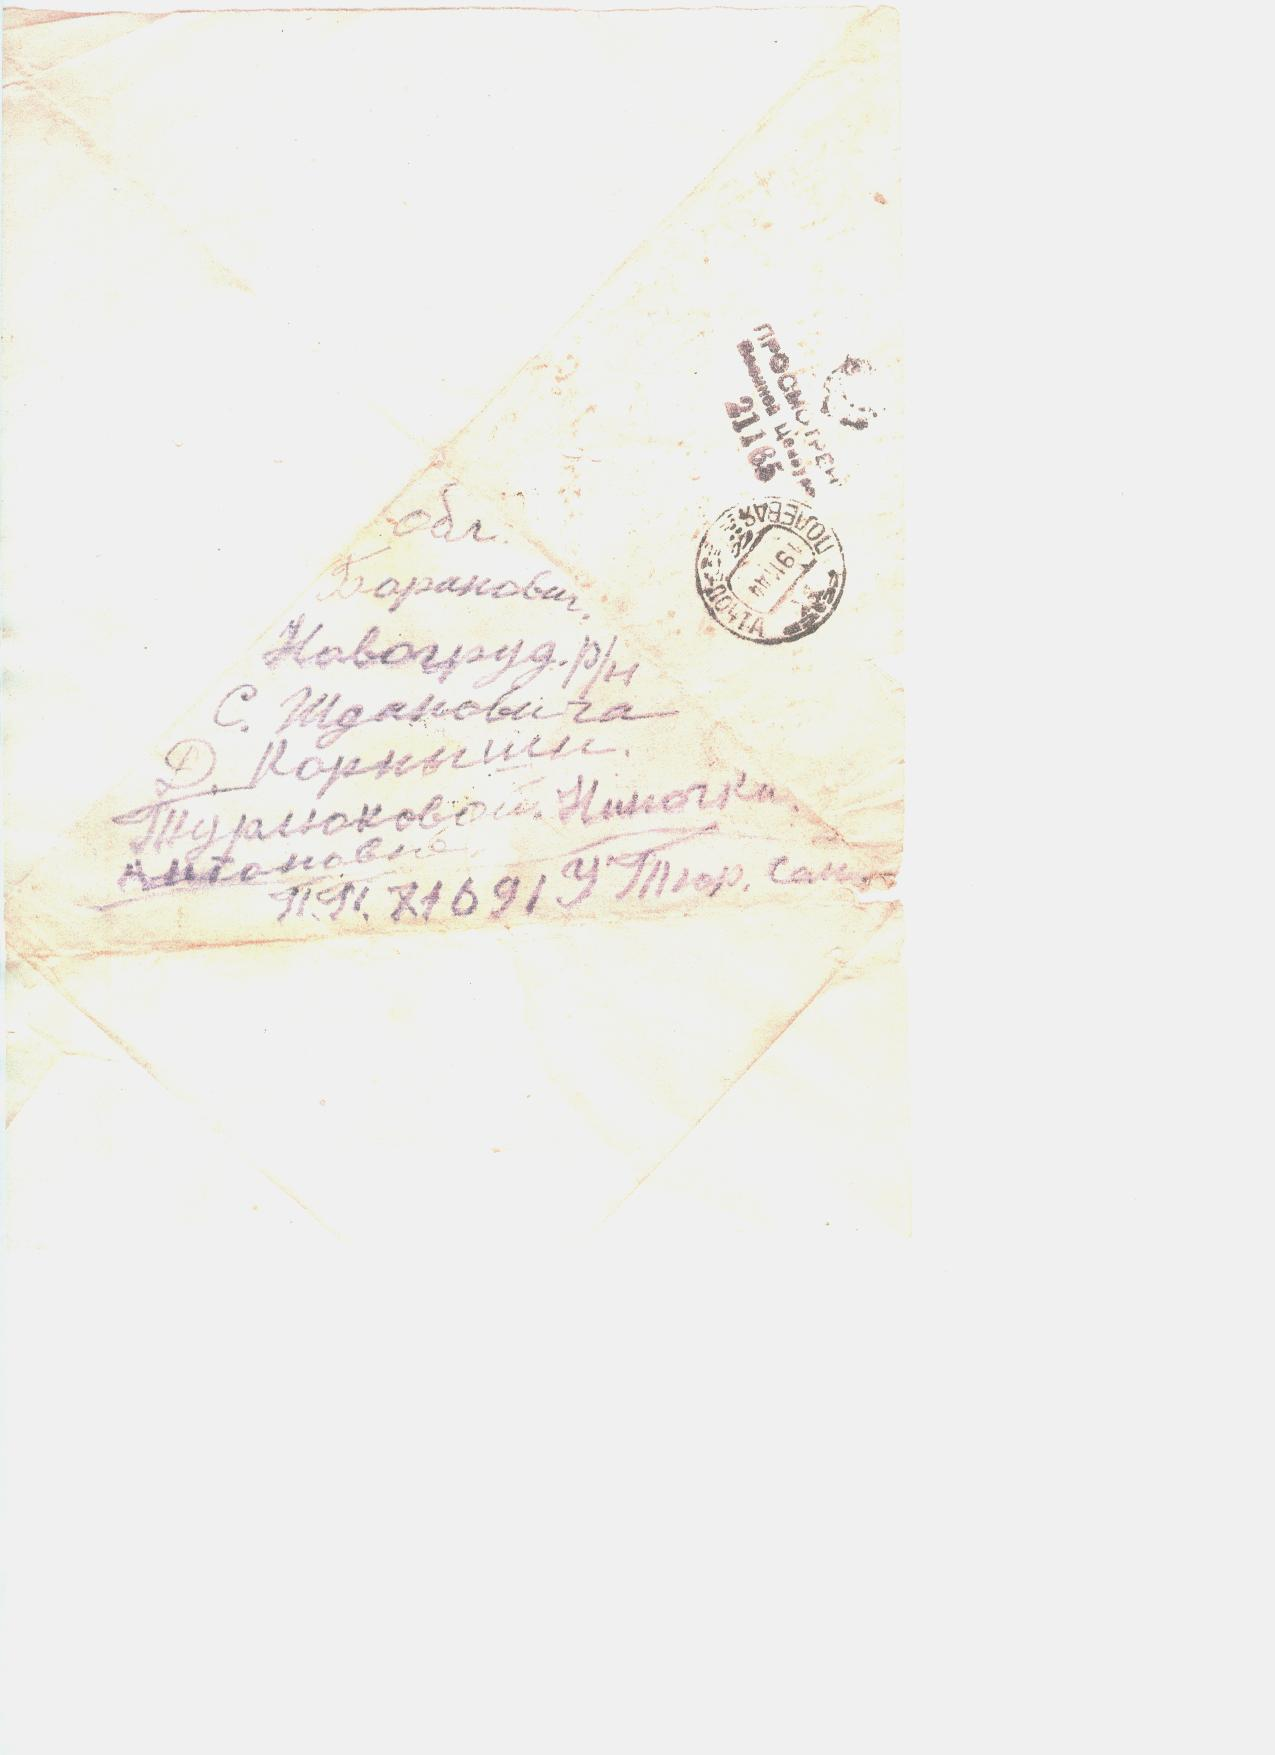 ПРОСМОТРЕНО
Военной Цензурой
21165
ПОЛЕВАЯ
ПОЧТА
обл.
Баранович.
Новогруд. р/н
С. Ждановича
Д. Корныши.
Турлюковой. Ниночки.
Антоновне.
П.П. 71691 У Тюр. Сан.